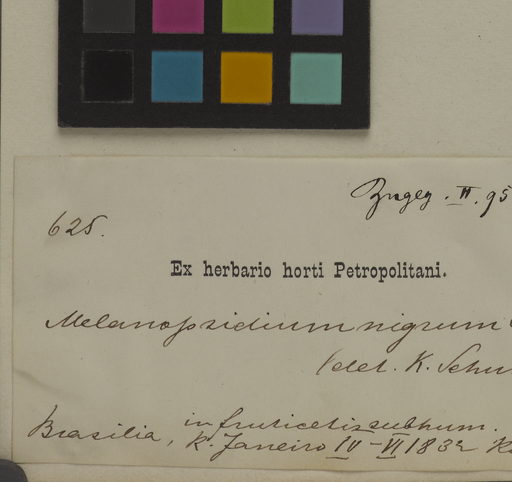 Zugeg. II. 95
625.
Ex herbario horti Petropolitani.
Melanopsidium nigrum
(det. K. Schu
in fruticetis subhum.
Brasilia, R. Janeiro IV-VI 1832